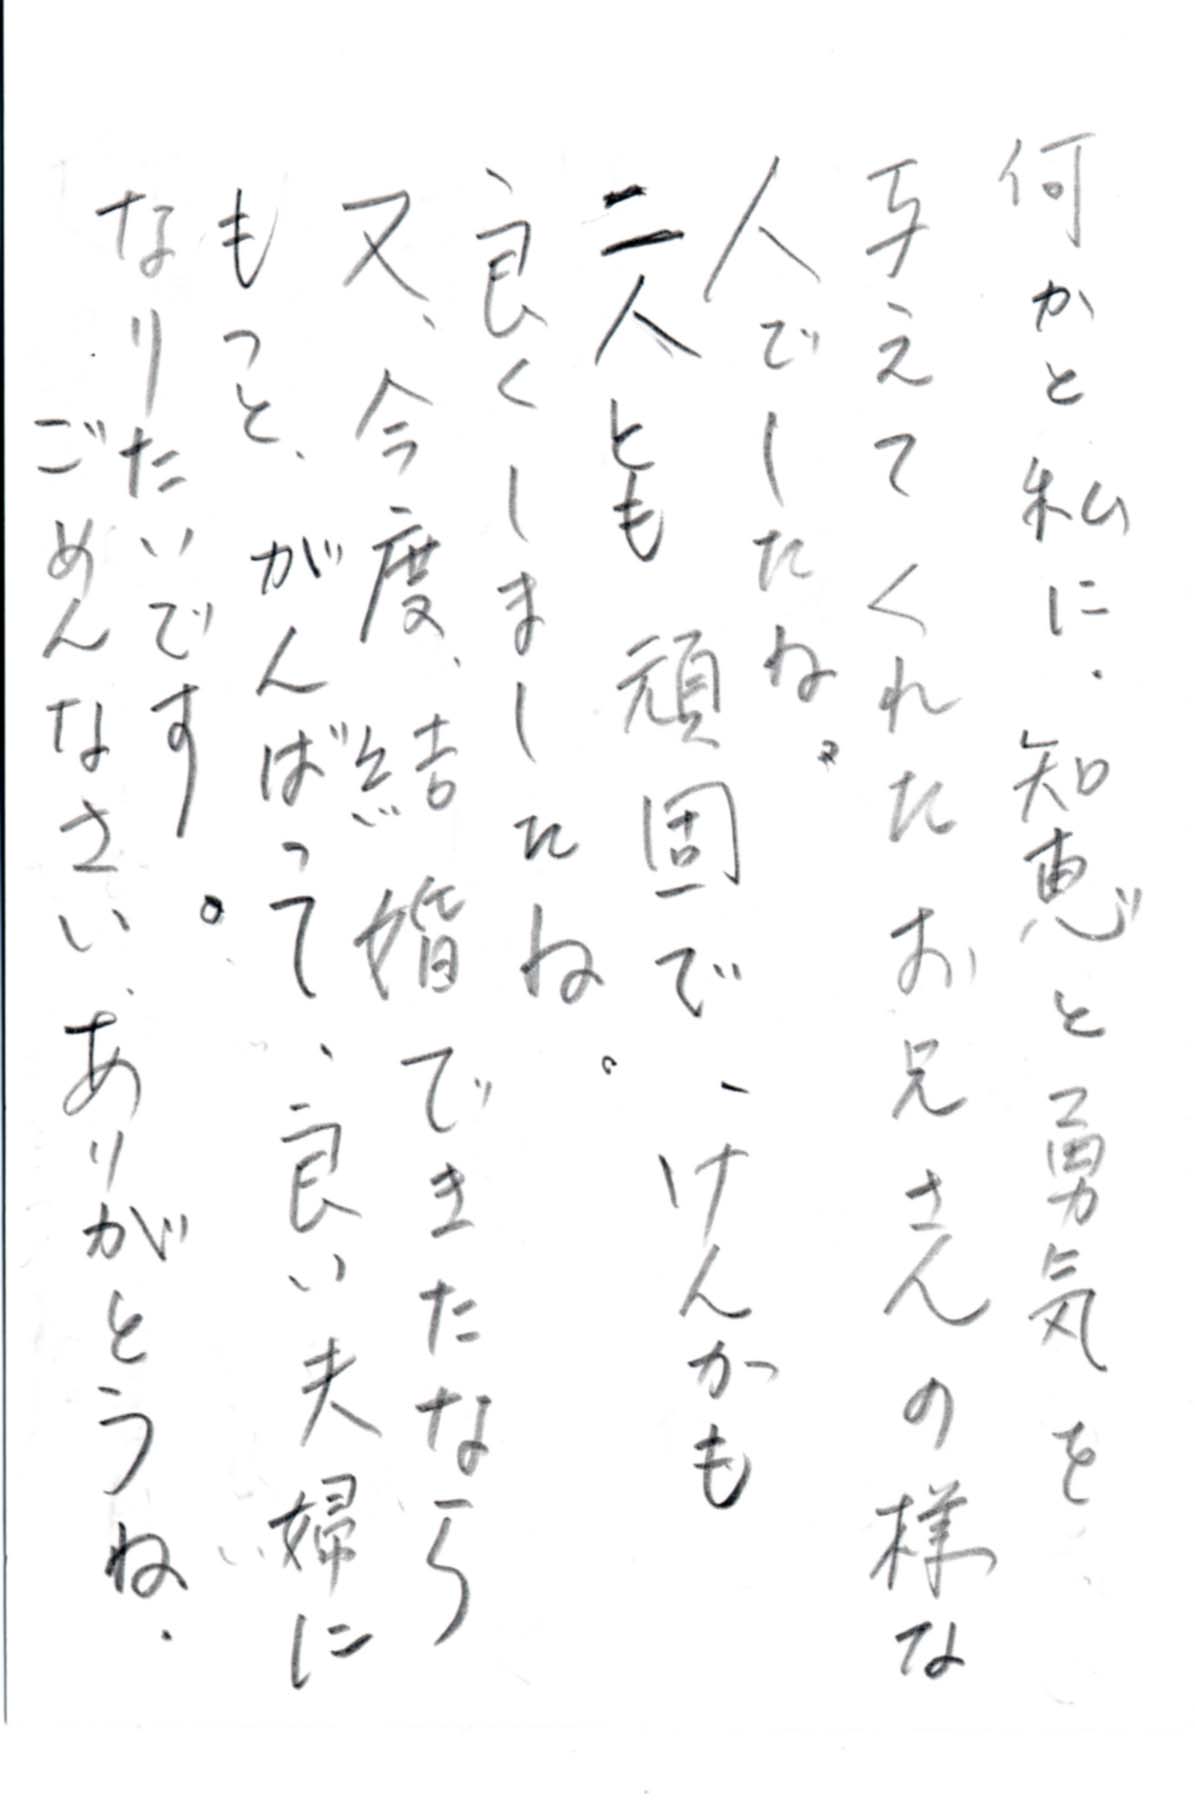 何かと私に、知恵と勇気を
与えてくれたお兄さんの様な
人でしたね。
二人とも頑固で、けんかも
良くしましたね。
又、今度、結婚できたなら
もっと、がんばって、良い夫婦に
なりたいです。
ごめんなさい、ありがとうね.